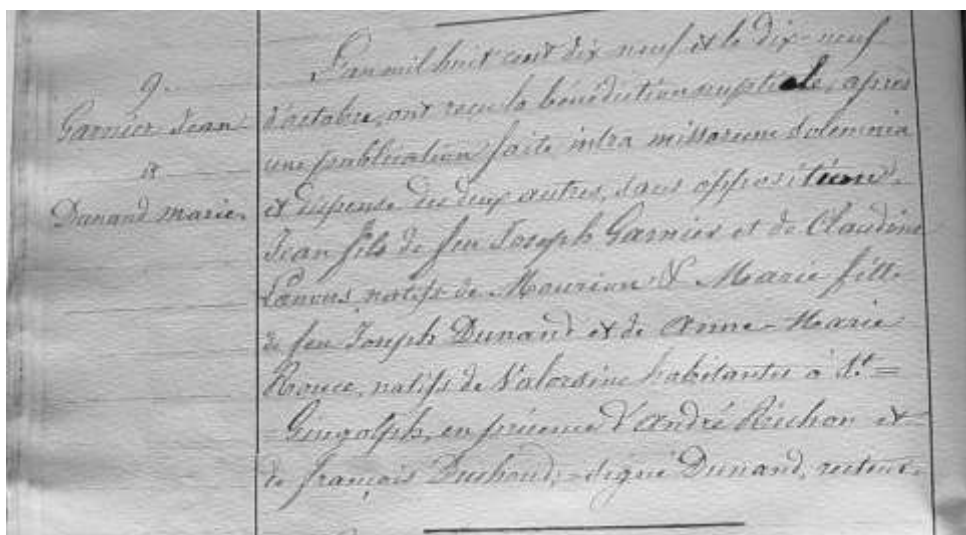 9.
Garnier Jean
et
Dunand marie.
L'an mil huit cent dix-neuf et le dix-neuf
d'octobre, ont reçu la bénédiction nuptiale, après
une publication faite intra missarum solemnia
et dispense des deux autres, sans opposition,
Jean fils de feu Joseph Garnier et de Claudine
natifs de & Marie fille
de feu Joseph Dunand et de Anne-Marie
natifs de Valorsine habitantes à St=
Gingolph, en présence d'André Ruchon et
de françois Duchoud; signé Dunand, recteur.